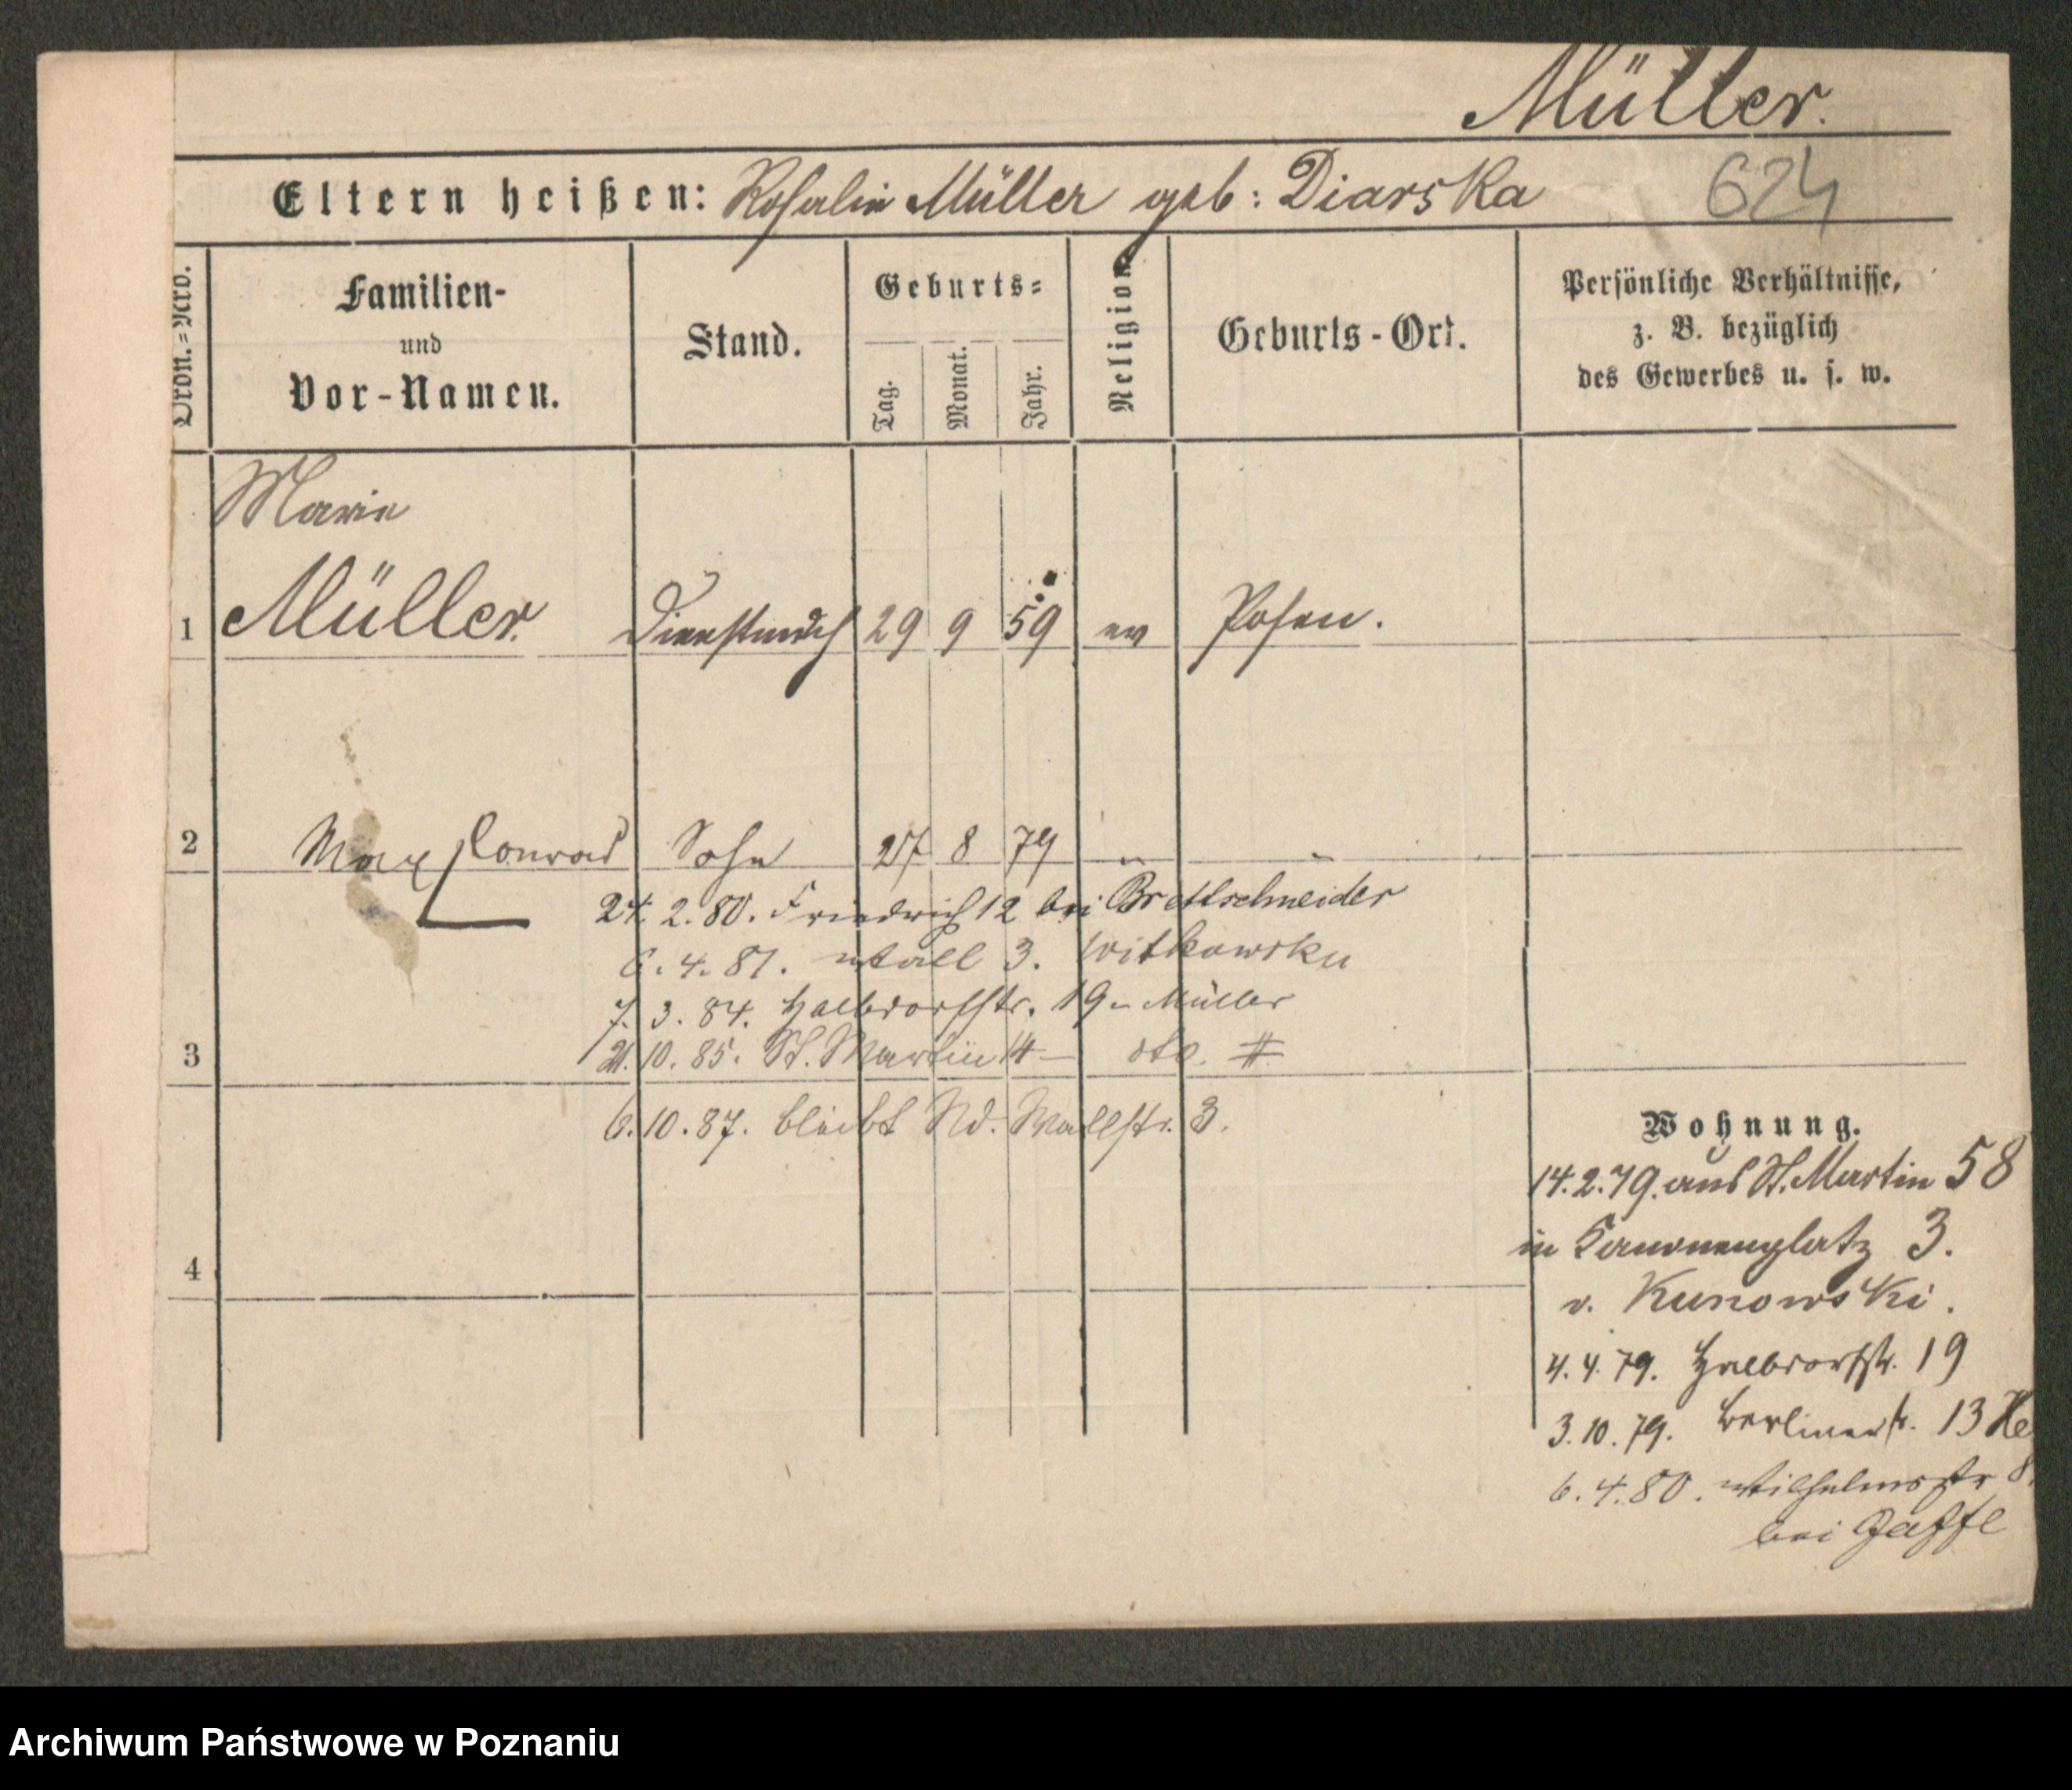 Müller.
Eltern heißen: Rosalie Müller geb: Diarska
624
Ordn.=Nro.
Familien-
und
Vor-Namen.
Stand.
Geburts=
Tag.
Monat.
Jahr.
Religion
Geburts-Ort.
Persönliche Verhältnisse,
z. B. bezüglich
des Gewerbes u. s. w.
Marie
1 Müller. Dienstmdch 29 9 59 ev Posen.
2 Max Conrad Sohn 27 8 79 " "
24. 2. 80. Friedrich 12 bei Brettschneider
6. 4. 81. Wall 3. Witkowska
7. 3. 84. Halbdorfstr. 19 - Müller
3 21. 10. 85. St. Martin 14 — dto. #
6. 10. 87. bleibt Nd. Wallstr. 3.
4
Wohnung.
14. 2. 79. aus St. Martin 58
in Kanonenplatz 3.
v. Kunowski.
4. 4. 79. Halbdorfstr. 19
3. 10. 79. Berlinerstr. 13 He
6. 4. 80. Wilhelmsstr 8.
bei Jaffe
Archiwum Państwowe w Poznaniu